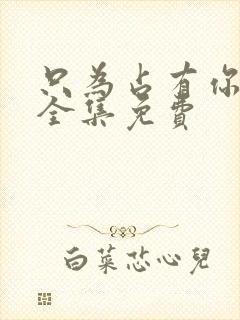 只为占有你
全集免费
白菜芯心兒